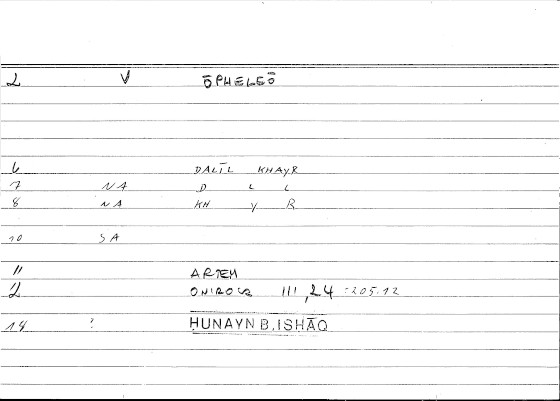 2 V ŌPHELEŌ
6 DALĪL KHAYR
7 NA D L L
8 NA KH Y R
10 SA
11 ARTEM
2 ONIROCR III, 24 :205.12
14 ? ḤUNAYN B. ISHĀQ